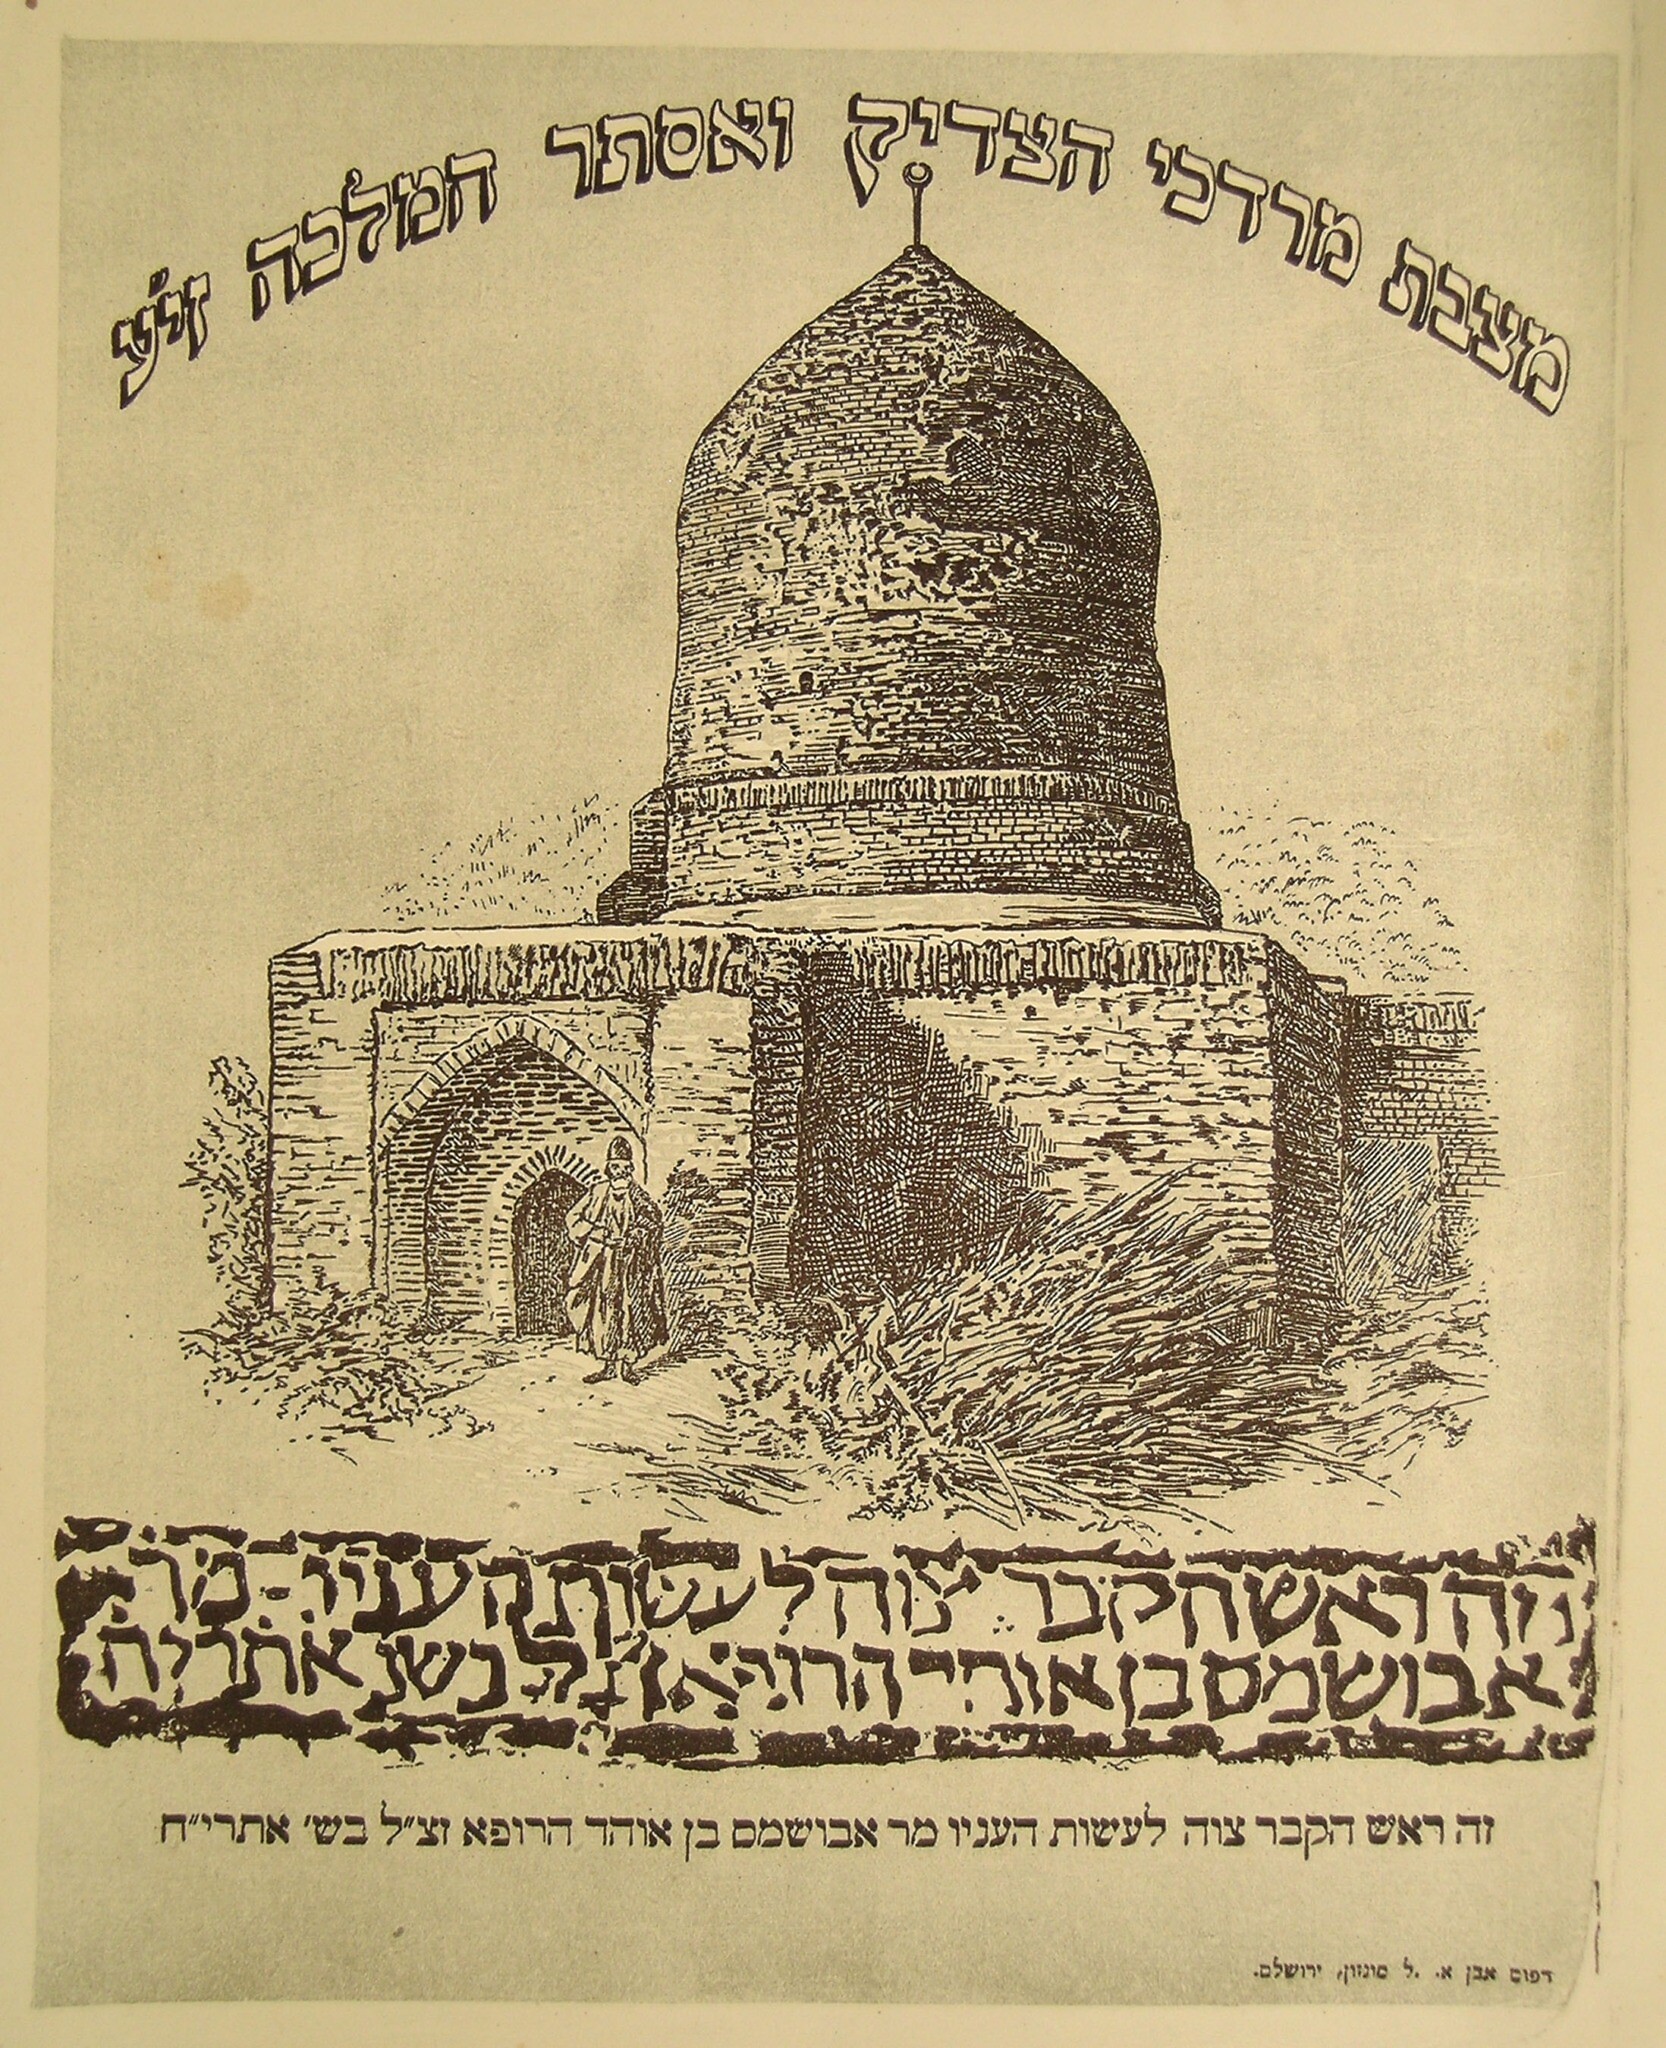 מצבת מרדכי הצדיק ואסתר המלכה זי״ע
וזה ראש הקבר צוה לעשות העניו מר
אבושמס בן אוהד הרופא זצ״ל בשנ אתריח
זה ראש הקבר צוה לעשות העניו מר אבושמס בן אוהד הרופא זצ״ל בש׳ אתרי״ח
דפוס אבן א. ל. מונזון, ירושלם.